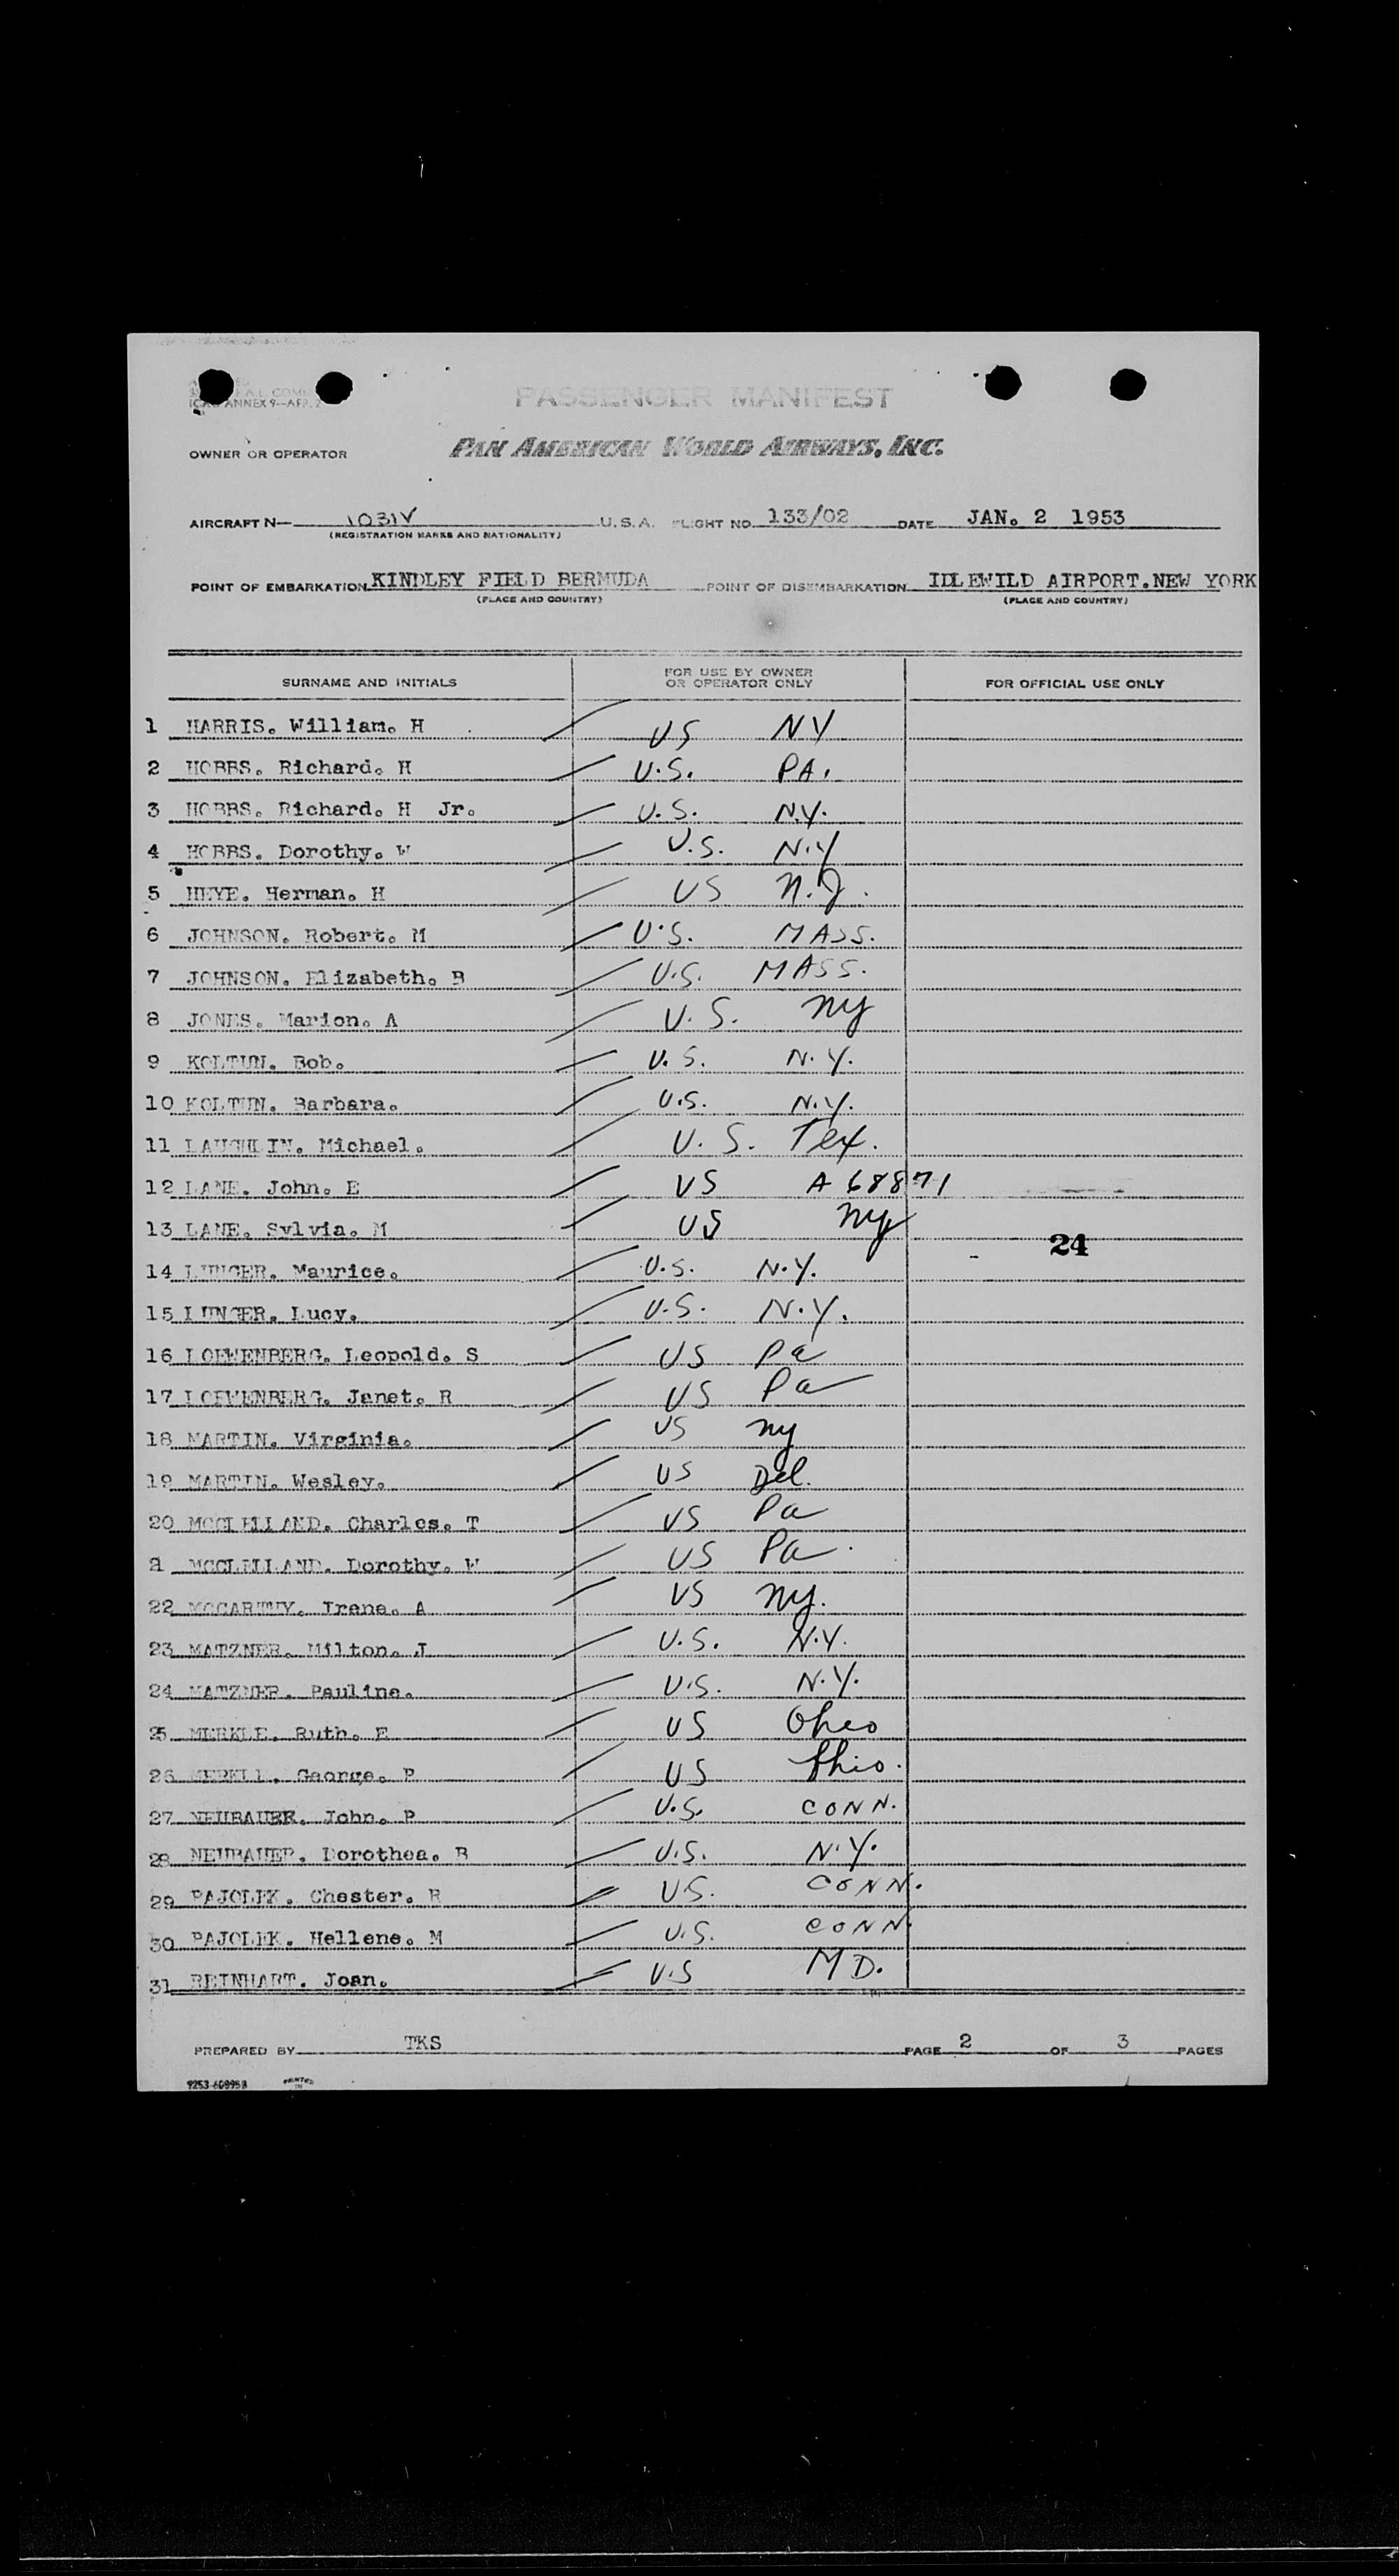 ICAO ANNEX 9—APP. 2
PASSENGER MANIFEST
OWNER OR OPERATOR PAN AMERICAN WORLD AIRWAYS, INC.
AIRCRAFT N— 1031V U.S.A. FLIGHT NO. 133/02 DATE JAN. 2 1953
(REGISTRATION MARKS AND NATIONALITY)
POINT OF EMBARKATION KINDLEY FIELD BERMUDA POINT OF DISEMBARKATION IDLEWILD AIRPORT.NEW YORK
(PLACE AND COUNTRY) (PLACE AND COUNTRY)
SURNAME AND INITIALS FOR USE BY OWNER OR OPERATOR ONLY FOR OFFICIAL USE ONLY
1 HARRIS. William. H US NY
2 HOBBS. Richard. H U.S. PA.
3 HOBBS. Richard. H Jr. U.S. N.Y.
4 HOBBS. Dorothy. W U.S. N.Y
5 HEYE. Herman. H US N.J.
6 JOHNSON. Robert. M U.S. MASS.
7 JOHNSON. Elizabeth. B U.S. MASS.
8 JONES. Marion. A U.S. NY
9 KOLTUN. Bob. U.S. N.Y.
10 KOLTUN. Barbara. U.S. N.Y.
11 LAUGHLIN. Michael. U.S. Tex.
12 LANE. John. E US A 68871
13 LANE. Sylvia. M US NY
24
14 LUNGER. Maurice. U.S. N.Y.
15 LUNGER. Lucy. U.S. N.Y.
16 LOEWENBERG. Leopold. S US Pa
17 LOEWENBERG. Janet. R US Pa
18 MARTIN. Virginia. US NY
19 MARTIN. Wesley. US Del.
20 MCCLELLAND. Charles. T US Pa
21 MCCLELLAND. Dorothy. W US Pa.
22 MCCARTHY. Irene. A US NY.
23 MATZNER. Milton. J U.S. N.Y.
24 MATZNER. Pauline. U.S. N.Y.
25 MERKLE. Ruth. E US Ohio
26 MERELL. George. P US Ohio.
27 NEUBAUER. John. P U.S. CONN.
28 NEUBAUER. Dorothea. B U.S. N.Y.
29 PAJOLEK. Chester. R U.S. CONN.
30 PAJOLEK. Hellene. M U.S. CONN.
31 REINHART. Joan. U.S MD.
PREPARED BY TKS PAGE 2 OF 3 PAGES